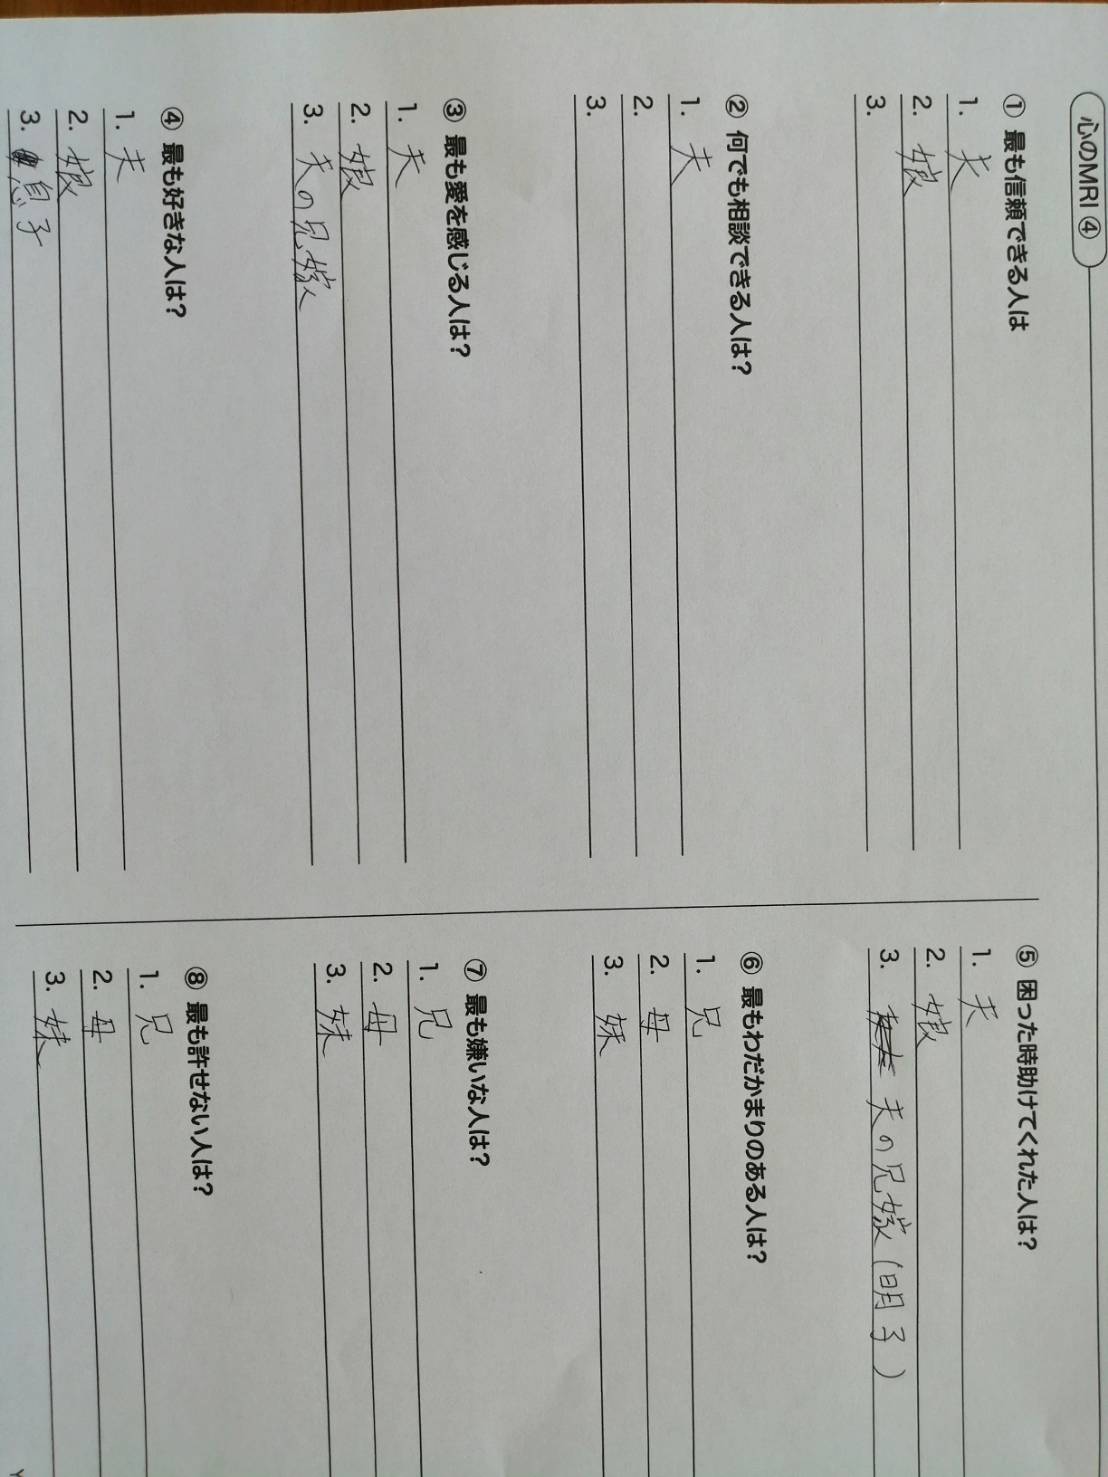 心のMRI ④
① 最も信頼できる人は
1. 夫
2. 娘
3.
② 何でも相談できる人は?
1. 夫
2.
3.
③ 最も愛を感じる人は?
1. 夫
2. 娘
3. 夫の兄嫁
④ 最も好きな人は?
1. 夫
2. 娘
3. 息子
⑤ 困った時助けてくれた人は?
1. 夫
2. 娘
3. 夫の兄嫁(明子)
⑥ 最もわだかまりのある人は?
1. 兄
2. 母
3. 妹
⑦ 最も嫌いな人は?
1. 兄
2. 母
3. 妹
⑧ 最も許せない人は?
1. 兄
2. 母
3. 妹